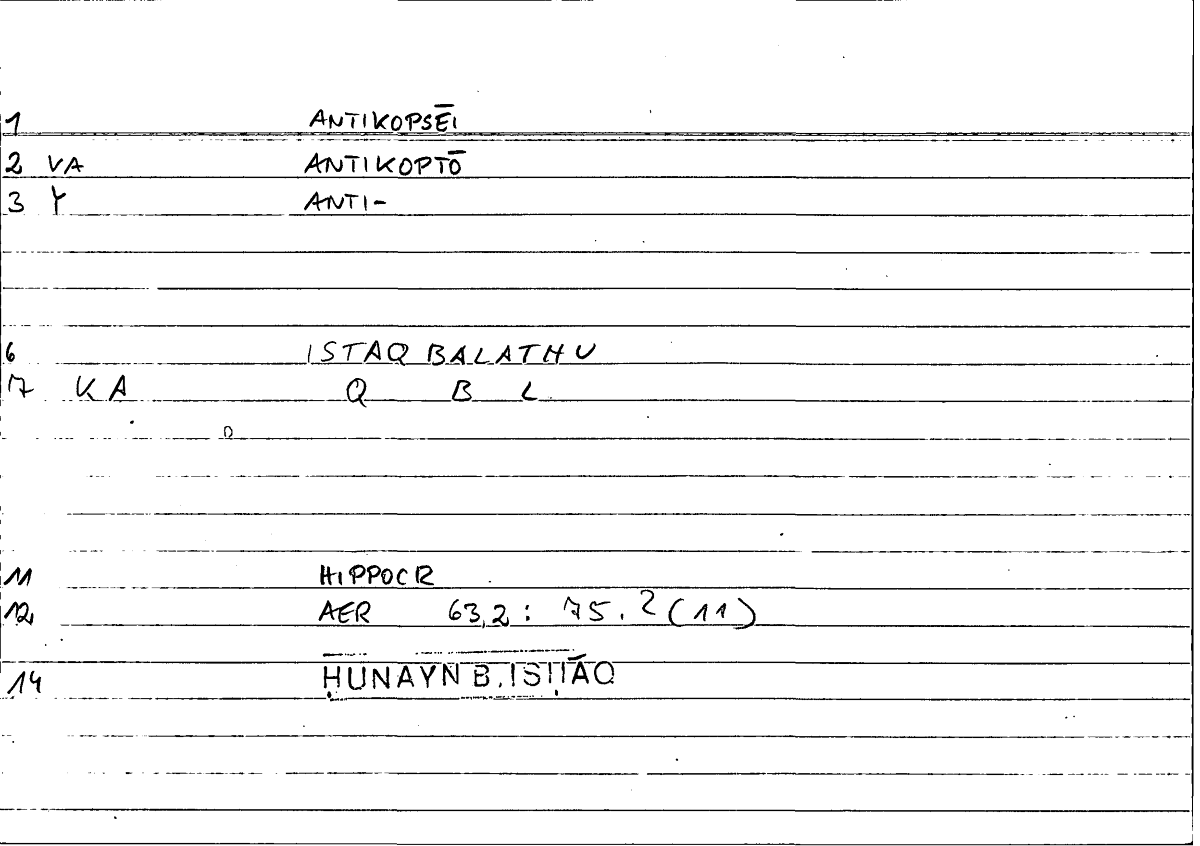 1 ANTIKOPSĒI
2 VA ANTIKOPTŌ
3 Y ANTI-
6 ISTAQ BALATHU
17 KA Q B L
11 HIPPOCR
12 AER 63,2: 75.2(11)
14 ḤUNAYN B. ISḤĀQ